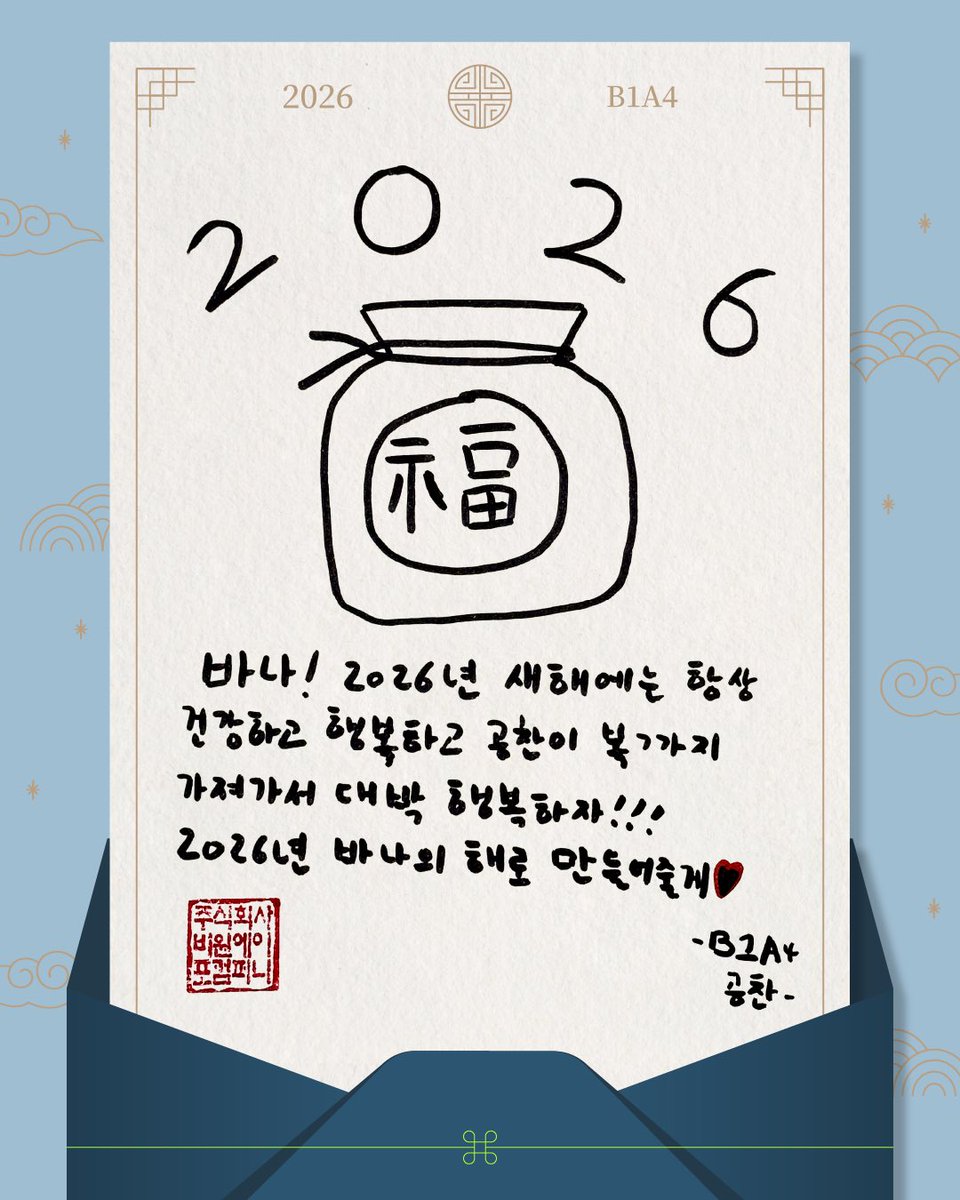 2026 B1A4
2026
福
바나! 2026년 새해에는 항상
건강하고 행복하고 공찬이 복ㄱ가지
가져가서 대박 행복하자!!!
2026년 바나의 해로 만들어줄게♥
주식회사
비원에이
포컴퍼니
-B1A4
공찬-